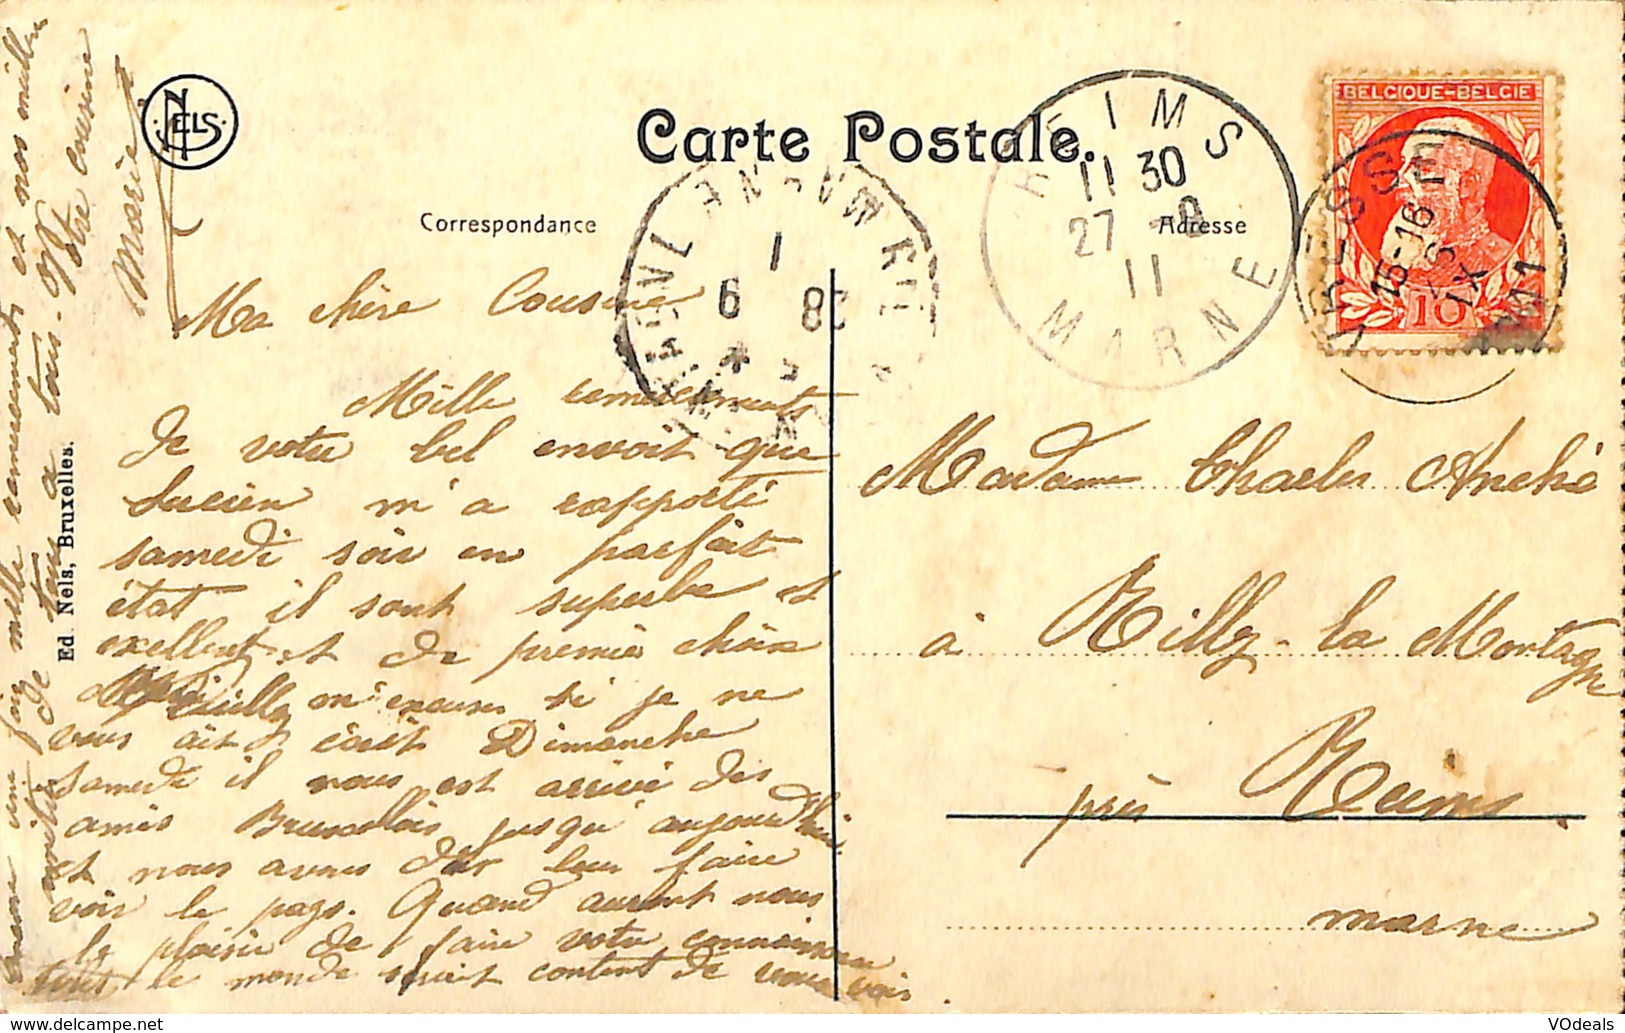 Carte Postale.
NELS
Correspondance
Adresse
BELGIQUE-BELGIE
10
REIMS
11 30
27 - 9
11
MARNE
15-16
IX
1911
Ma chère Cousine
Mille remerciements
de votre bel envoit que
Lucien m'a rapporté
samedi soir en parfait
état il sont superbe et
exellent et de premier choix
Veuillez m'excuser si je ne
vous ait écrit Dimanche
samedi il nous est arrivé des
amis Bruxelois jusqu'aujourd'hui
et nous avons dût leur faire
voir le pays. Quand auront nous
le plaisir de faire votre connaissance
tout le monde serait content de vous voir.
Encore une fois mille remerciements et nos meilleurs
amitiés de tous a tous. Votre cousine
Marie
Madame Charles Anché
à Rilly-la Montagne
près Reims.
marne
Ed. Nels, Bruxelles.
VOdeals